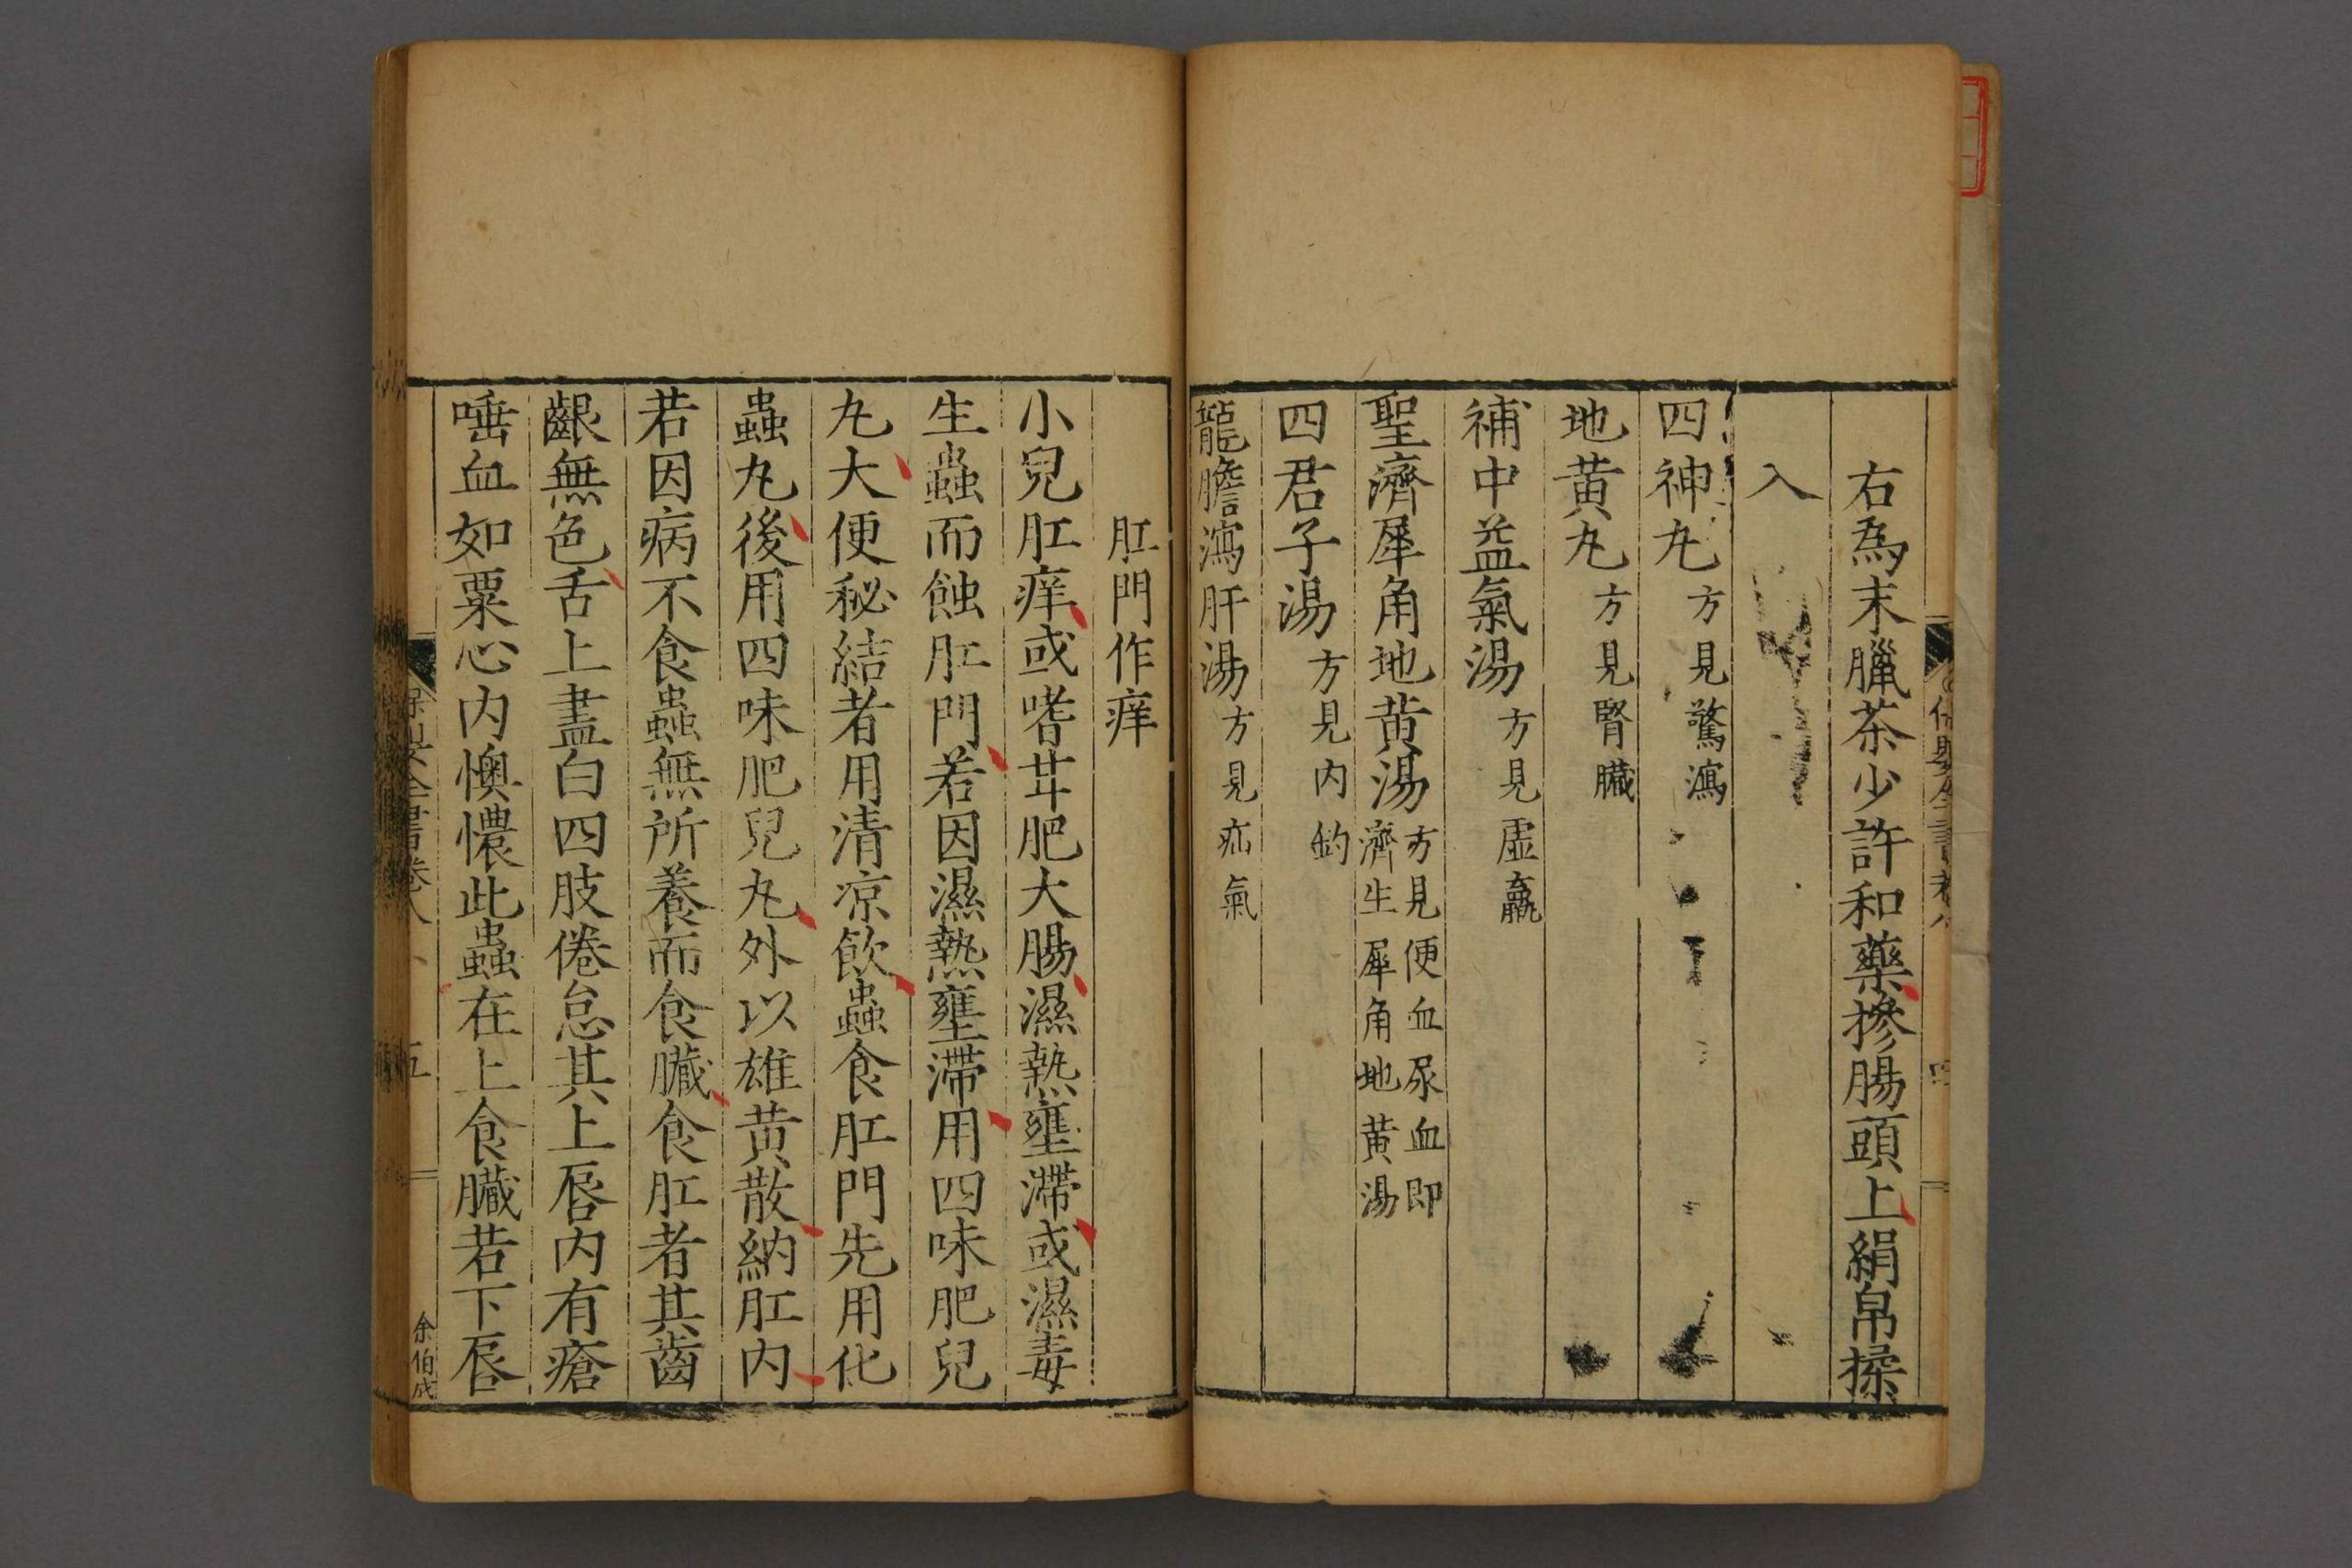 右為末臘茶少許和藥摻腸頭上絹帛揉
入
四神丸方見驚瀉
地黄丸方見腎臟
補中益氣湯方見虛羸
聖濟犀角地黄湯方見便血尿血即
濟生犀角地黄湯
四君子湯方見内釣
龍膽瀉肝湯方見疝氣
肛門作痒
小兒肛痒或嗜甘肥大腸濕熱壅滯或濕毒
生蟲而蝕肛門若因濕熱壅滯用四味肥兒
丸大便秘結者用清凉飲蟲食肛門先用化
蟲丸後用四味肥兒丸外以雄黄散納肛内
若因病不食蟲無所養而食臟食肛者其齒
齦無色舌上盡白四肢倦怠其上唇内有瘡
唾血如粟心内懊憹此蟲在上食臟若下唇
保嬰全書卷八
五
余伯成